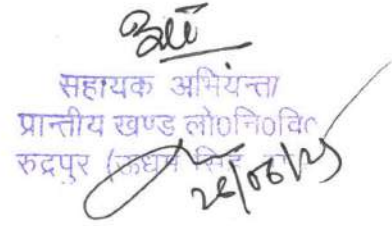 सहायक अभियन्ता
प्रान्तीय खण्ड लो०नि०वि०
रुद्रपुर (ऊधम सिंह
26/06/25